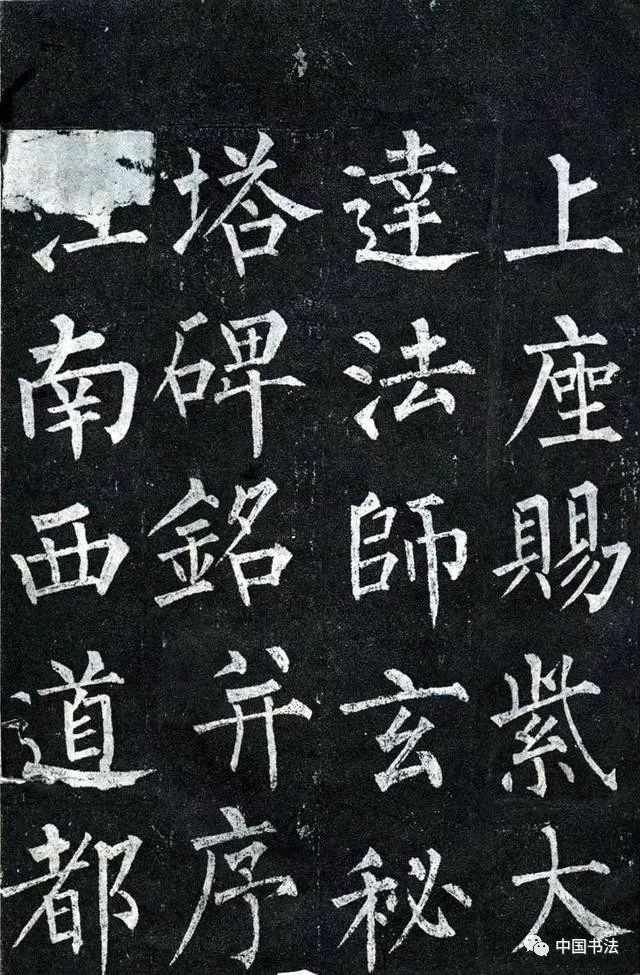 上座賜紫大
達法師玄秘
塔碑銘并序
江南西道都
中国书法